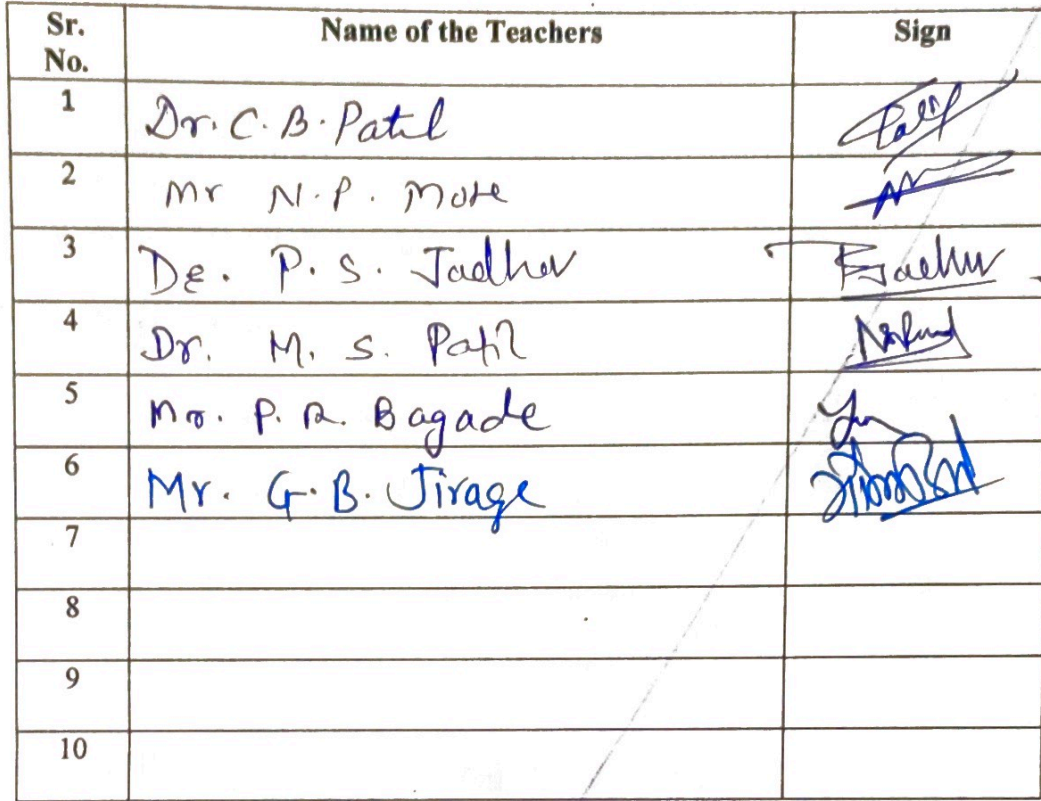 Sr. No. Name of the Teachers Sign
1 Dr. C. B. Patil
2 Mr N. P. More
3 Dr. P. S. Jadhav
4 Dr. M. S. Patil
5 Mr. P. R. Bagade
6 Mr. G. B. Jirage
7
8
9
10